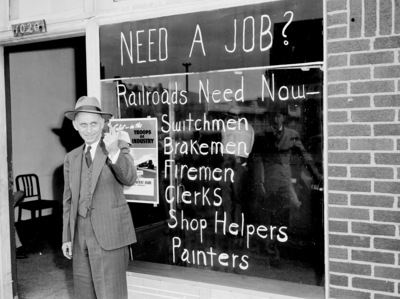 NEED A JOB?
Railroads Need Now-
Switchmen
Brakemen
Firemen
Clerks
Shop Helpers
Painters
TROOPS
OF
INDUSTRY